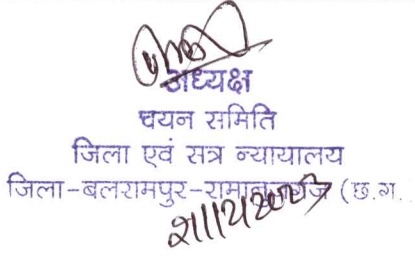 अध्यक्ष
चयन समिति
जिला एवं सत्र न्यायालय
जिला-बलरामपुर-रामानुजगंज (छ.ग.